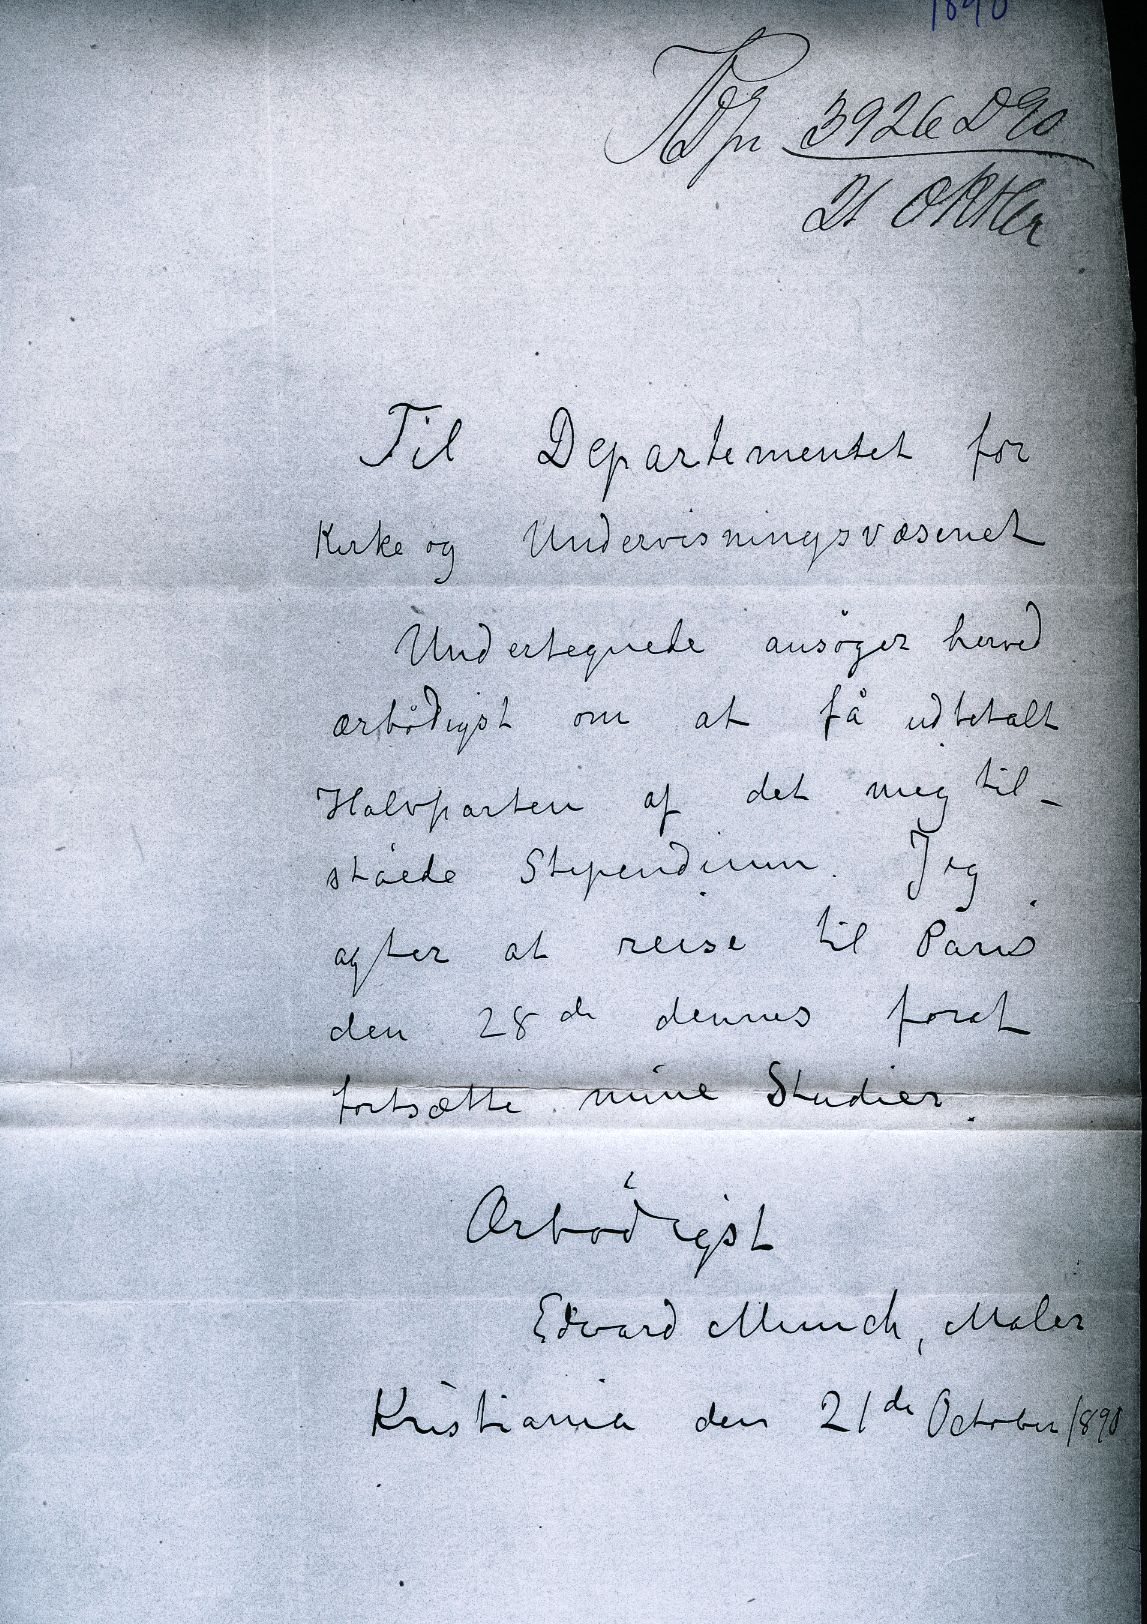 1890
3926 D 90
21 Oktbr
Til Departementet for
Kirke og Undervisningsvæsenet
Undertegnede ansøger herved
ærbødigst om at få udbetalt
Halvparten af det mig til-
ståede Stipendium. Jeg
agter at reise til Paris
den 28de dennes forat
fortsætte mine Studier.
Ærbødigst
Edvard Munch, Maler
Kristiania den 21de October 1890